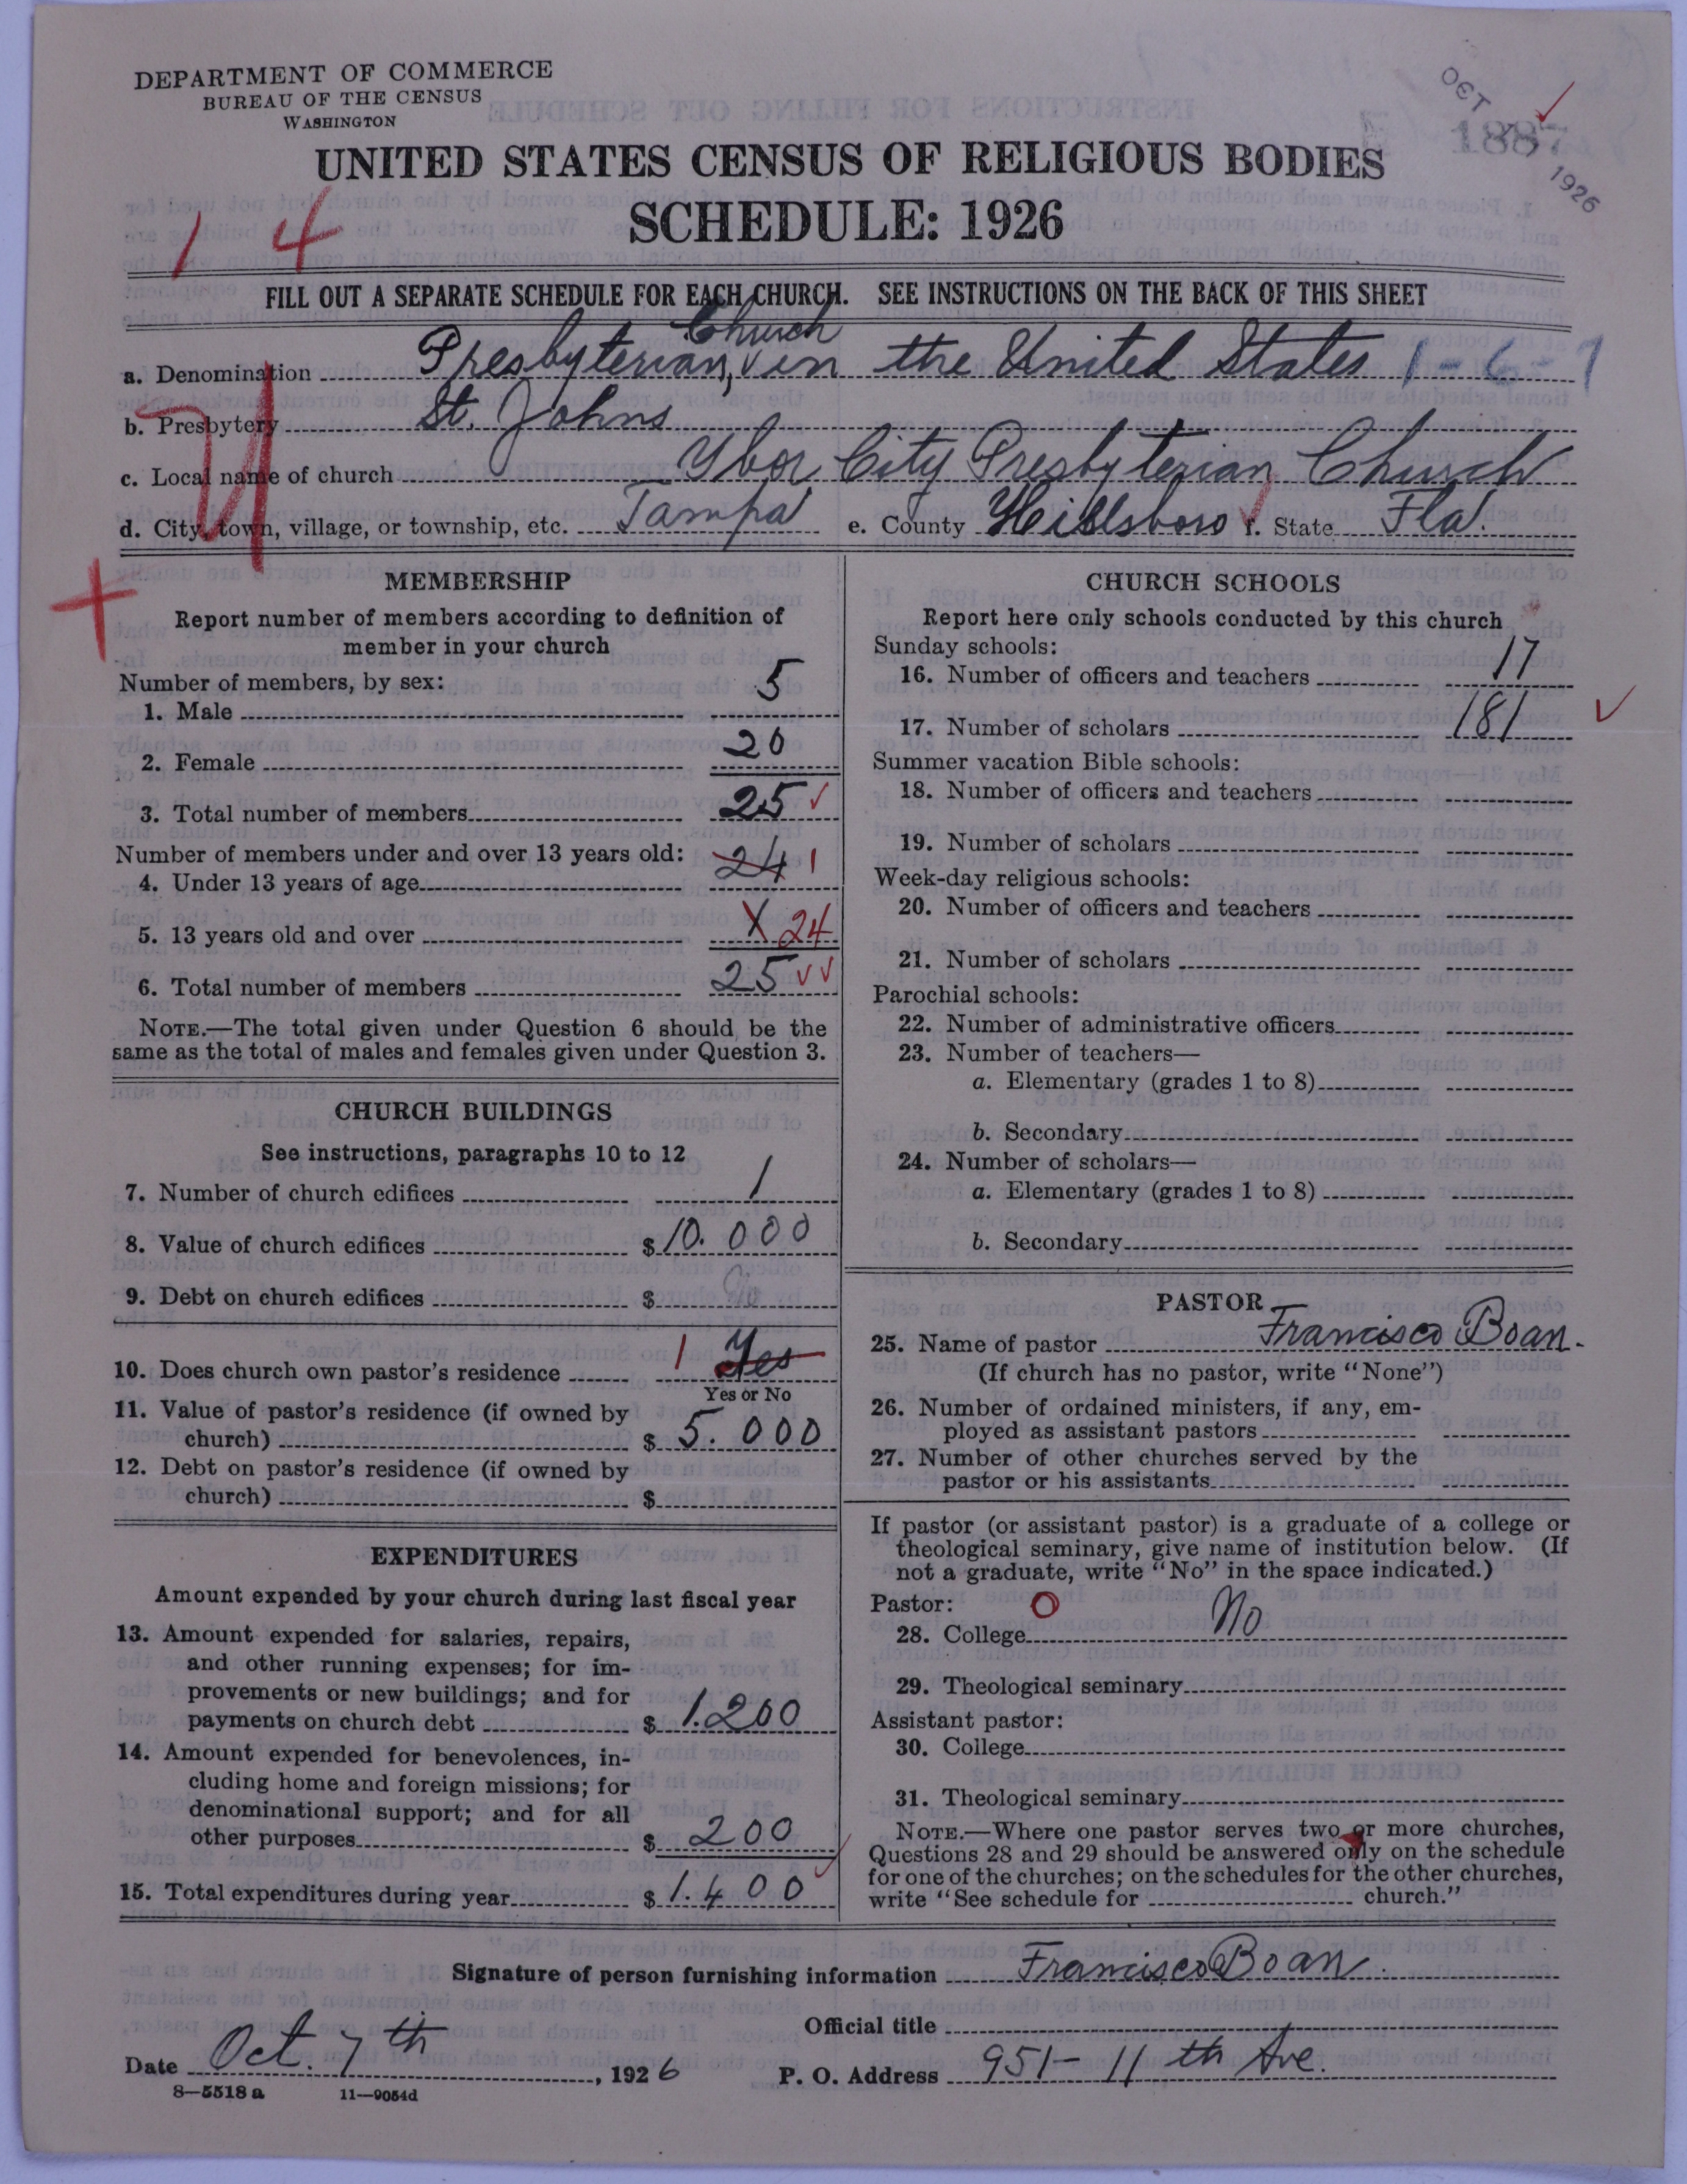 DEPARTMENT OF COMMERCE
BUREAU OF THE CENSUS
WASHINGTON
UNITED STATES CENSUS OF RELIGIOUS BODIES
SCHEDULE: 1926
OCT
1887
1926
14
FILL OUT A SEPARATE SCHEDULE FOR EACH CHURCH. SEE INSTRUCTIONS ON THE BACK OF THIS SHEET
a. Denomination Presbyterian, Church in the United States 1-6-7
b. Presbytery St. Johns
c. Local name of church Ybor City Presbyterian Church
d. City, town, village, or township, etc. Tampa e. County Hillsboro f. State Fla.
MEMBERSHIP
Report number of members according to definition of
member in your church
Number of members, by sex:
1. Male 5
2. Female 20
3. Total number of members 25
Number of members under and over 13 years old:
4. Under 13 years of age 24 1
5. 13 years old and over X 24
6. Total number of members 25
NOTE.—The total given under Question 6 should be the
same as the total of males and females given under Question 3.
CHURCH BUILDINGS
See instructions, paragraphs 10 to 12
7. Number of church edifices 1
8. Value of church edifices $10.000
9. Debt on church edifices $
10. Does church own pastor's residence 1 Yes
Yes or No
11. Value of pastor's residence (if owned by
church) $ 5.000
12. Debt on pastor's residence (if owned by
church) $
EXPENDITURES
Amount expended by your church during last fiscal year
13. Amount expended for salaries, repairs,
and other running expenses; for im-
provements or new buildings; and for
payments on church debt $ 1.200
14. Amount expended for benevolences, in-
cluding home and foreign missions; for
denominational support; and for all
other purposes $ 200
15. Total expenditures during year $ 1.400
CHURCH SCHOOLS
Report here only schools conducted by this church
Sunday schools:
16. Number of officers and teachers 17
17. Number of scholars 181
Summer vacation Bible schools:
18. Number of officers and teachers
19. Number of scholars
Week-day religious schools:
20. Number of officers and teachers
21. Number of scholars
Parochial schools:
22. Number of administrative officers
23. Number of teachers—
a. Elementary (grades 1 to 8)
b. Secondary
24. Number of scholars—
a. Elementary (grades 1 to 8)
b. Secondary
PASTOR
25. Name of pastor Francisco Boan.
(If church has no pastor, write "None")
26. Number of ordained ministers, if any, em-
ployed as assistant pastors
27. Number of other churches served by the
pastor or his assistants
If pastor (or assistant pastor) is a graduate of a college or
theological seminary, give name of institution below. (If
not a graduate, write "No" in the space indicated.)
Pastor: O
28. College No
29. Theological seminary
Assistant pastor:
30. College
31. Theological seminary
NOTE.—Where one pastor serves two or more churches,
Questions 28 and 29 should be answered only on the schedule
for one of the churches; on the schedules for the other churches,
write "See schedule for church."
Signature of person furnishing information Francisco Boan.
Official title
Date Oct. 7th, 1926 P. O. Address 951- 11th Ave.
8—5518 a 11—9054d